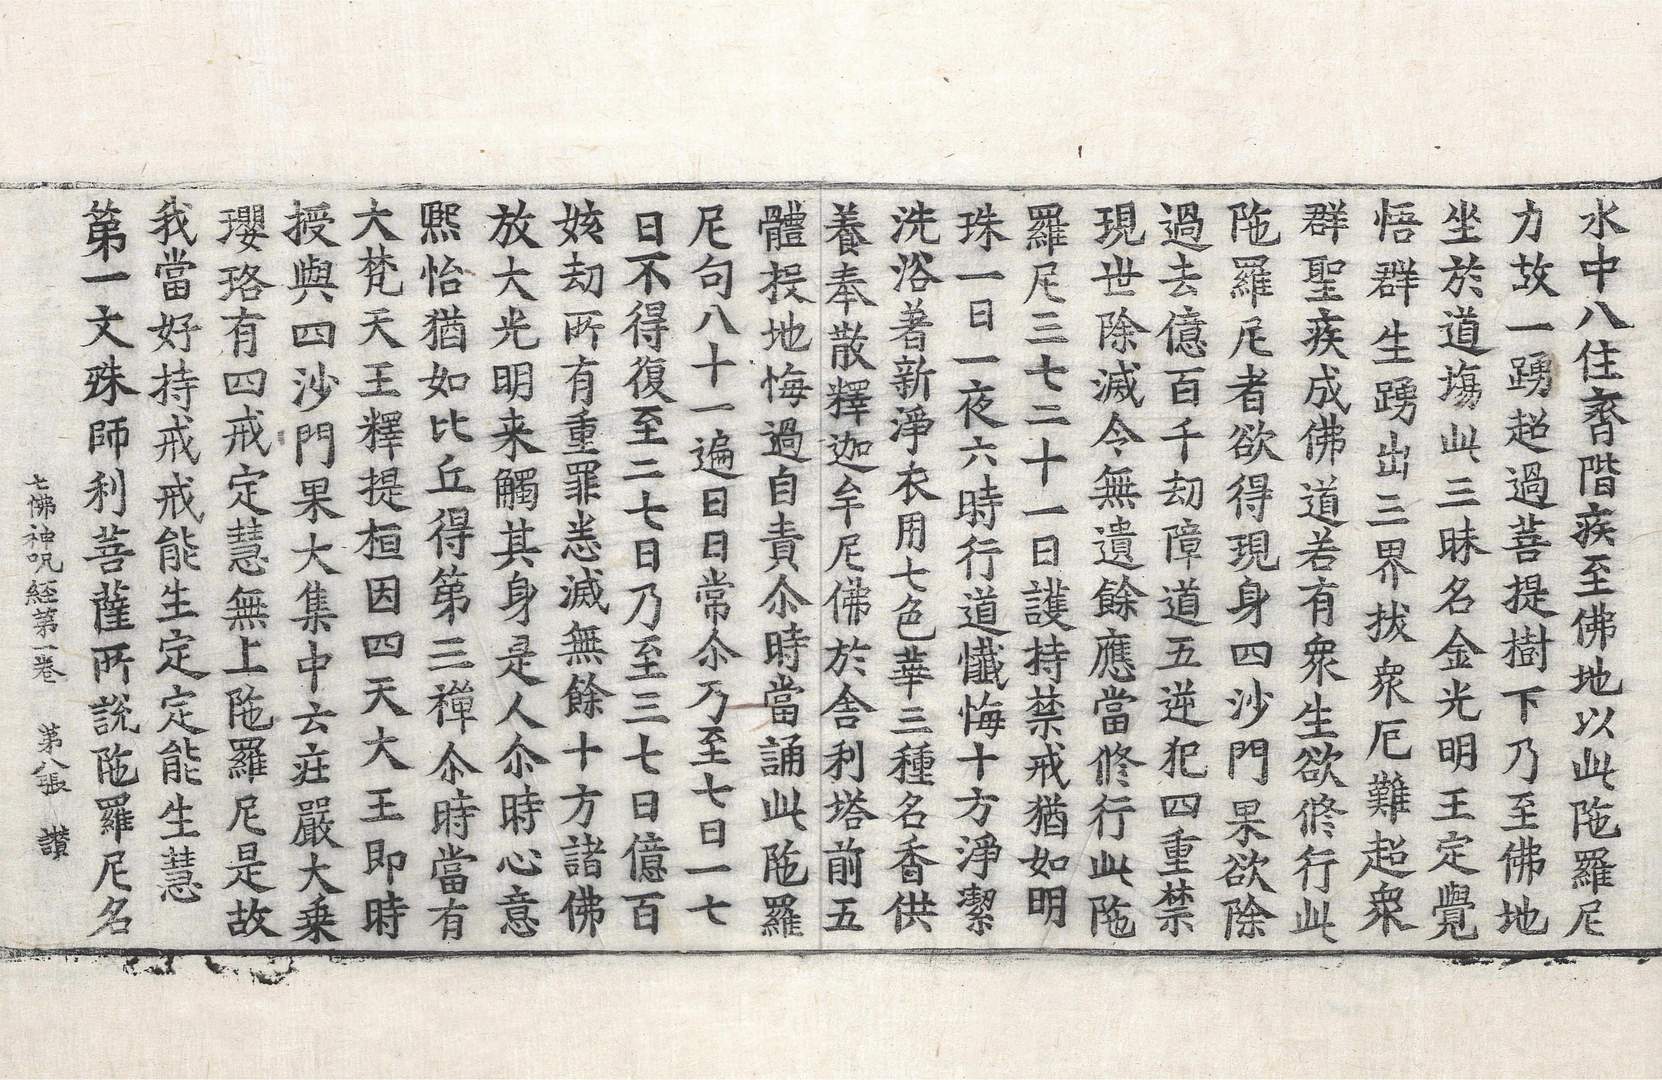 水中八住齊階疾至佛地以此陁羅尼
力故一踊超過菩提樹下乃至佛地
坐於道塲此三昧名金光明王定覺
悟群生踊出三界拔衆厄難超衆
群聖疾成佛道若有衆生欲修行此
陁羅尼者欲得現身四沙門果欲除
過去億百千劫障道五逆犯四重禁
現世除滅令無遺餘應當修行此陁
羅尼三七二十一日護持禁戒猶如明
珠一日一夜六時行道懺悔十方淨潔
洗浴著新淨衣用七色華三種名香供
養奉散釋迦牟尼佛於舍利塔前五
體投地悔過自責尒時當誦此陁羅
尼句八十一遍日日常尒乃至七日一七
日不得復至二七日乃至三七日億百
姟劫所有重罪悉滅無餘十方諸佛
放大光明来觸其身是人尒時心意
熈怡猶如比丘得第三禪尒時當有
大梵天王釋提桓因四天大王即時
授與四沙門果大集中云莊嚴大乗
瓔珞有四戒定慧無上陁羅尼是故
我當好持戒戒能生定定能生慧
第一文殊師利菩薩所説陁羅尼名
七佛神呪経第一卷 第八張 讃